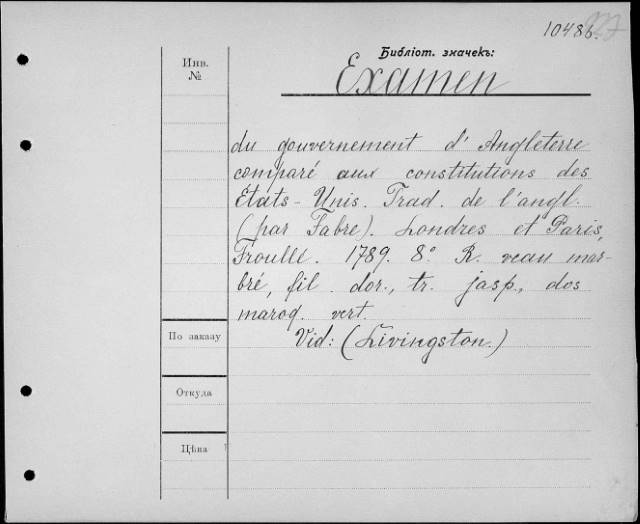 10486.
Библіот. значекъ:
Инв.
№
Examen
du gouvernement d'Angleterre
comparé aux constitutions des
États-Unis. Trad. de l'angl.
(par Fabre). Londres et Paris,
Froullé. 1789. 8° R. veau mar-
bré, fil. dor., tr. jasp., dos
maroq. vert.
Vid: (Livingston.)
По заказу
Откуда
Цѣна